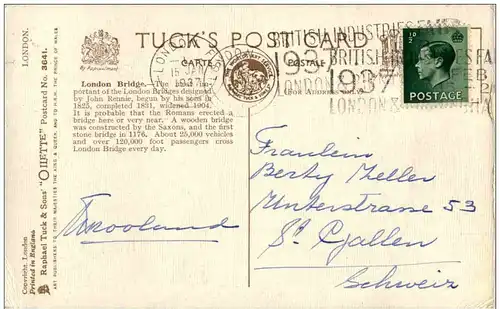 TUCK'S POST CARD
CARTE POSTALE
By Appointment
(For Address Only)
LONDON
15 JAN
1937
BRITISH INDUSTRIES FAIR
1937
LONDON &
FEB
½
POSTAGE
London Bridge.—The most im-
portant of the London Bridges designed
by John Rennie, begun by his sons in
1825, completed 1831, widened 1904.
It is probable that the Romans erected a
bridge here or very near. A wooden bridge
was constructed by the Saxons, and the first
stone bridge in 1176. About 25,000 vehicles
and over 120,000 foot passengers cross
London Bridge every day.
Fraulein
Berty Zeller
Unterstrasse 53
St Gallen
Schweiz
LONDON.
Raphael Tuck & Sons' "OILETTE" Postcard No. 3641.
ART PUBLISHERS TO THEIR MAJESTIES THE KING & QUEEN, AND TO H.R.H. THE PRINCE OF WALES
Copyright, London
Printed in England